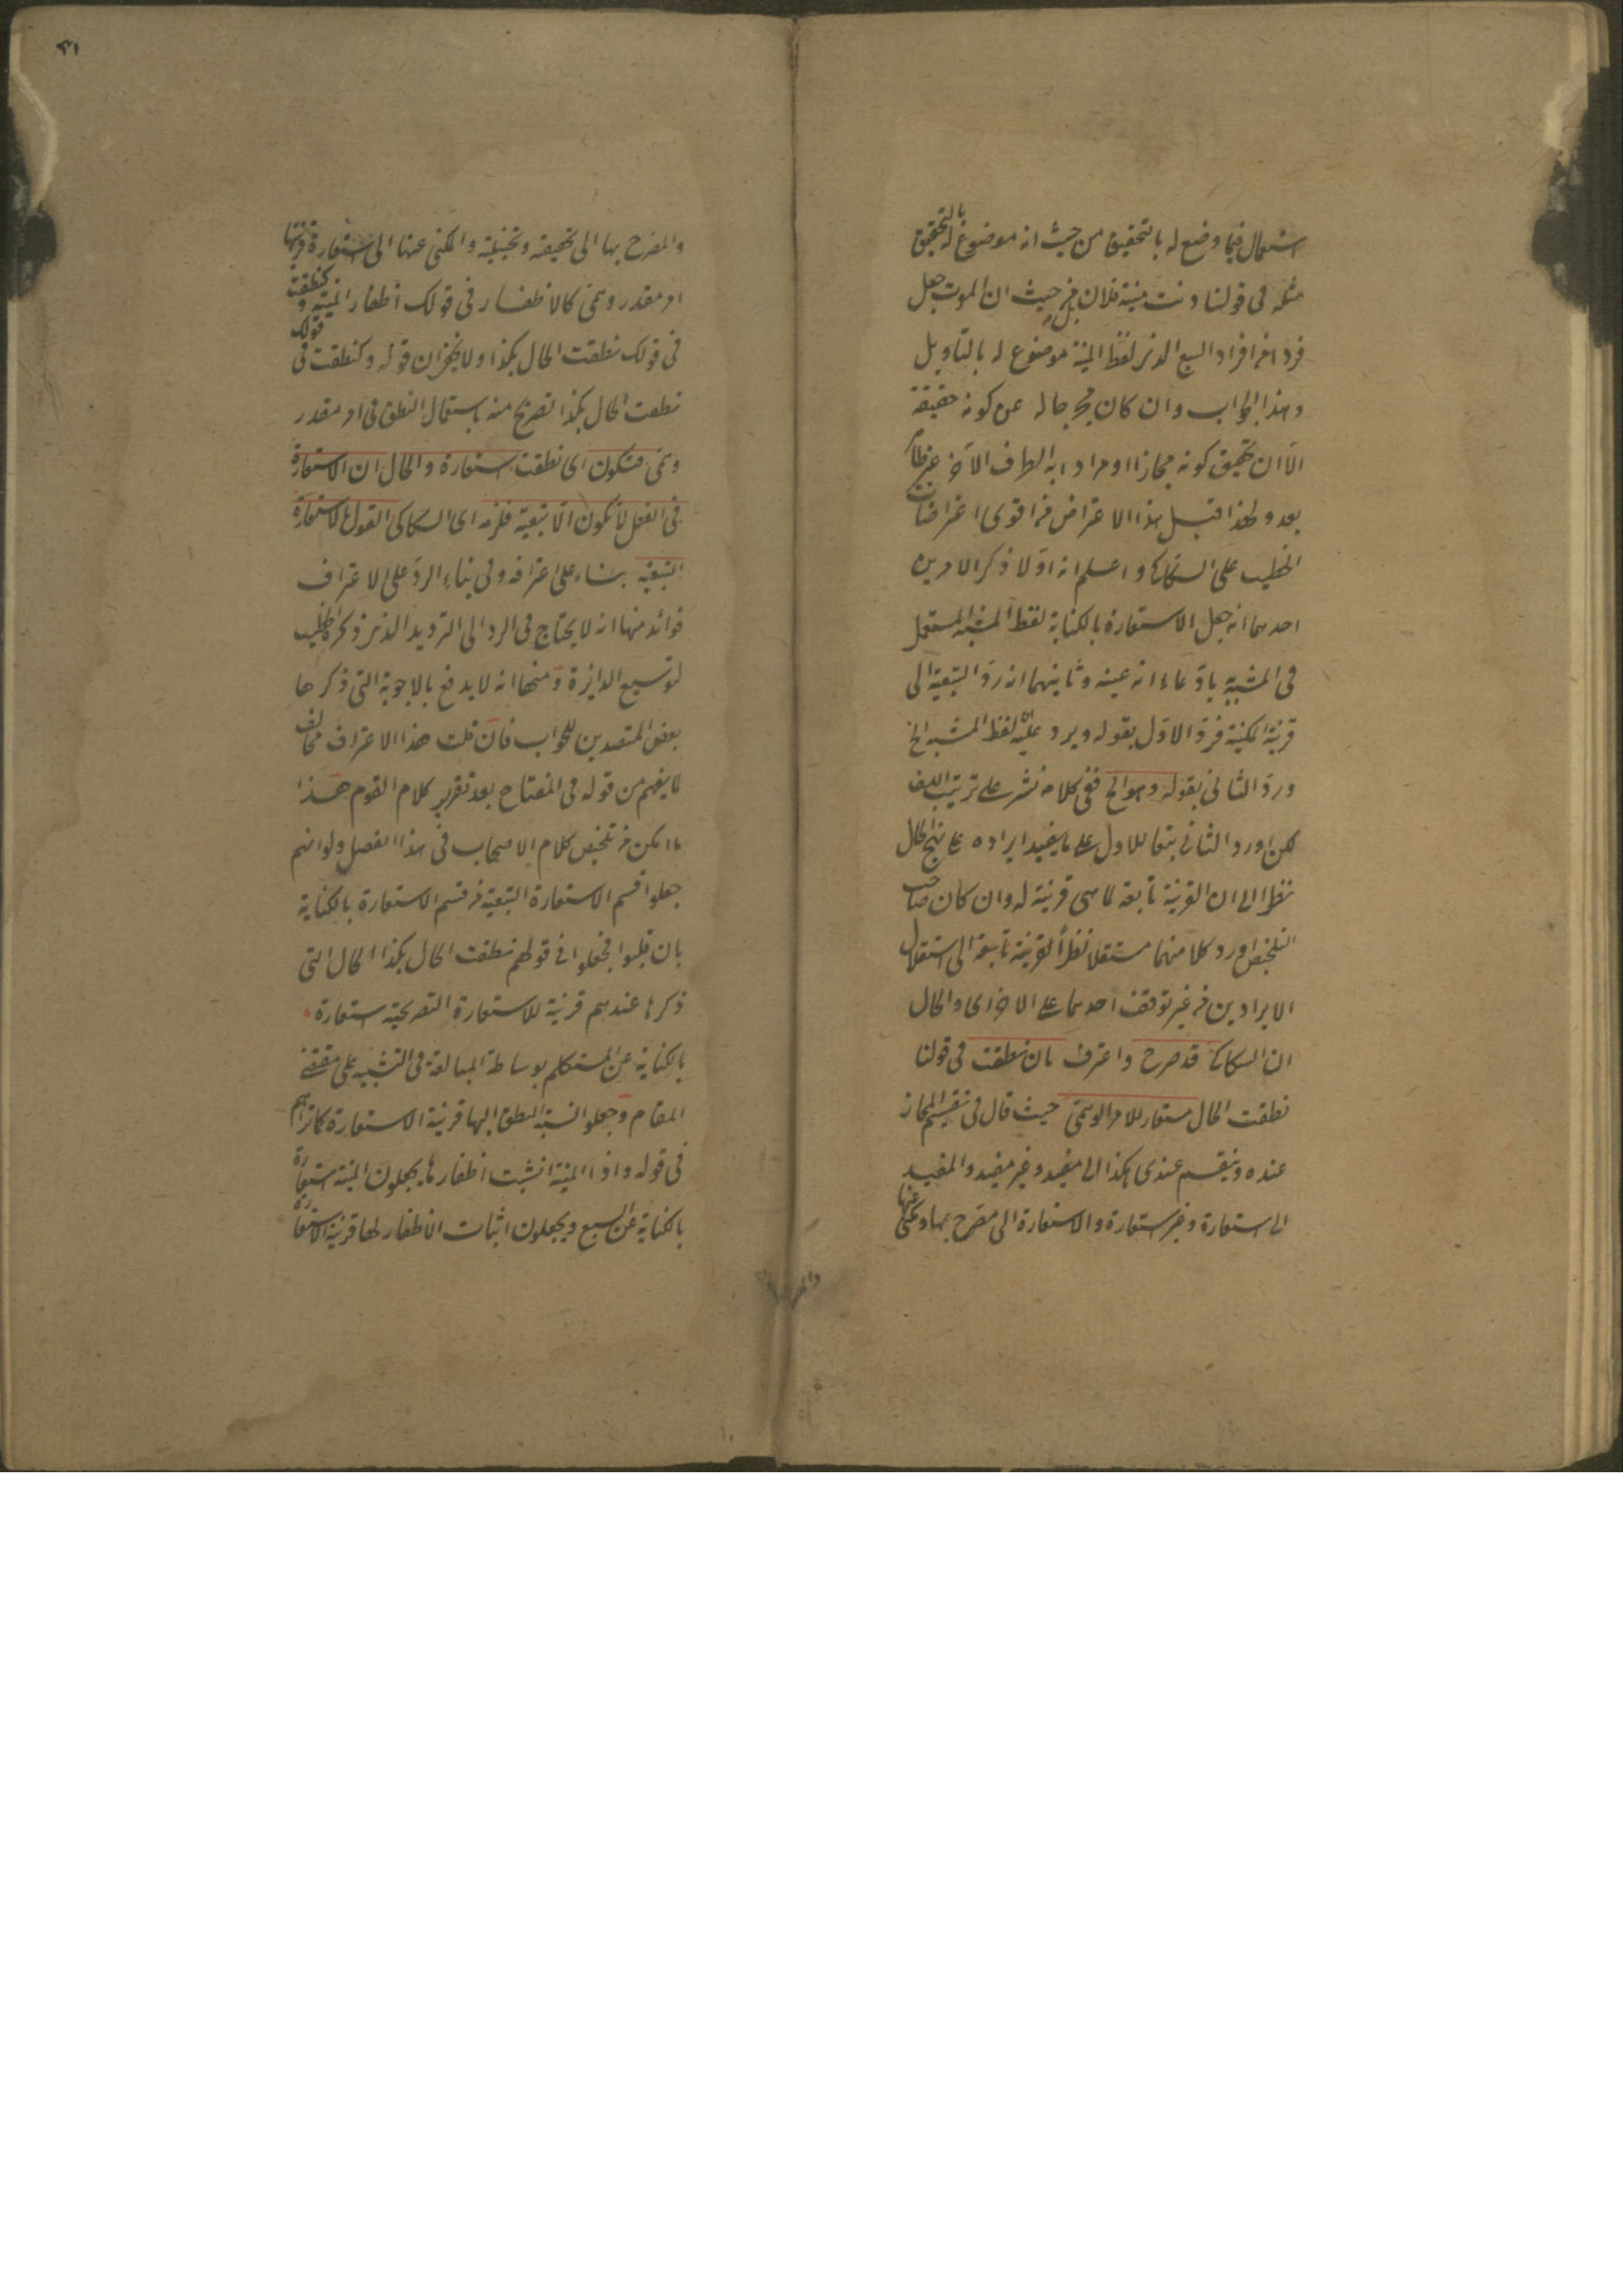 استعمال فيما وضع له بالتحقيق من حيث انه موضوع له بالتحقيق
مثله فى قولنا دنت منية فلان بل من حيث ان الموت جعل
فردا من افراد السبع الذى لفظ المنية موضوع له بالتأويل
وهذا الجواب وان كان مخرجا له عن كونه حقيقة
الا ان تحقيق كونه مجازا او مرادا به الطرف الآخر غير ظاهر
بعد ولهذا قيل هذا الاعتراض من اقوى اعتراضات
الخطيب على السكاكى واعلم انه اولا ذكر الامرين
احدهما انه جعل الاستعارة بالكناية لفظ المشبه المستعمل
فى المشبه به بادعاء انه عينه وثانيهما انه رد التبعية الى
قرينة المكنية فرد الاول بقوله ويرد عليه ان لفظ المشبه الخ
ورد الثانى بقوله وهو الخ ففى كلامه نشر على ترتيب اللف
لكن اورد الثانى تبعا للاول على ما يفيد ايراده على نهج الحال
نظرا الى ان القرينة تابعة لما هى قرينة له وان كان صاحب
التلخيص اورد كلا منهما مستقلا نظرا لقرينة تابعة الى استقلال
الايرادين من غير توقف احدهما على الاخر اى والحال
ان السكاكى قد صرح واعترف بان نطقت فى قولنا
نطقت الحال مستعار للامر الوهمى حيث قال فى تقسيم المجاز
عنده وينقسم عندى هكذا الى مفيد وغير مفيد والمفيد
الى استعارة وغير استعارة والاستعارة الى مصرح بها ومكنى عنها
والمصرح بها الى تحقيقية وتخييلية والمكنى عنها الى استعارة قرينتها
امر مقدر وهمى كالاظفار فى قولك اظفار المنية و كنطقت
فى قولك نطقت الحال بكذا اولا يخفى ان قوله وكنطقت فى قولك
نطقت الحال بكذا تصريح منه باستعمال النطق فى امر مقدر
وهمى فتكون اى نطقت استعارة والحال ان الاستعارة
فى الفعل لا تكون الا تبعية فلزمه اى السكاكى القول بالاستعارة
التبعية بناء على اعترافه وفى بناء الرد على الاعتراف
فوائد منها انه لا يحتاج فى الرد الى الترديد الذى ذكره الخطيب
لتوسيع الدائرة ومنها انه لا يدفع بالاجوبة التى ذكرها
بعض المتصدين للجواب فان قلت هذا الاعتراف مخالف
لما يفهم من قوله فى المفتاح بعد تقرير كلام القوم هذا
ما امكن من تلخيص كلام الاصحاب فى هذا الفصل ولو انهم
جعلوا قسم الاستعارة التبعية من قسم الاستعارة بالكناية
بان قلبوا فجعلوا فى قولهم نطقت الحال بكذا الحال التى
ذكرها عندهم قرينة للاستعارة التصريحية استعارة
بالكناية عن المتكلم بوساطة المبالغة فى التشبيه على مقتضى
المقام وجعلوا نسبة النطق اليها قرينة الاستعارة كما تراهم
فى قوله واذا المنية انشبت اظفارها يجعلون المنية استعارة
بالكناية عن السبع ويجعلون اثبات الاظفار لها قرينة الاستعارة